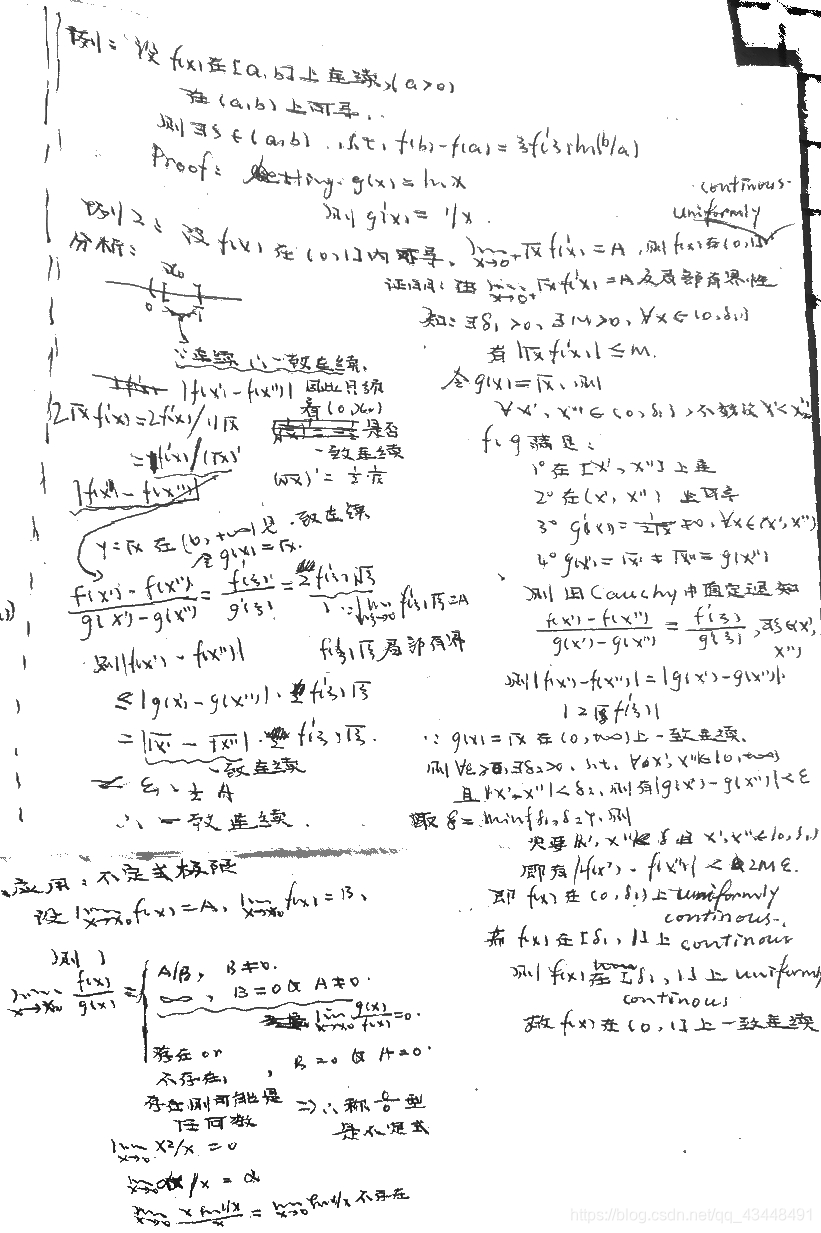 例: 设 f(x) 在 [a,b] 上连续, (a>0)
在 (a,b) 上可导.
则 ∃ξ∈(a,b), s.t. f(b)-f(a)=ξf'(ξ)ln(b/a)
Proof: g(x)=lnx
则 g'(x)=1/x.
例2: 设 f(x) 在 (0,1] 内可导, lim x→0+ √x f'(x)=A, 则 f(x) 在 (0,1]
uniformly
continous.
分析:
x0
0 1
∵连续 ∴一致连续.
|f(x')-f(x'')| 因此只须
看 (0,x0)
是否
一致连续
2√x f'(x)=2f'(x)/1/√x
=f'(x)/(√x)'
(√x)'=1/2 1/√x
|f(x')-f(x'')|
y=√x 在 (0,+∞) 是一致连续
令 g(x)=√x.
f(x')-f(x'')/g(x')-g(x'')=f'(ξ)/g'(ξ)=2f'(ξ)√ξ
∵lim ξ→0 f'(ξ)√ξ=A
则|f(x')-f(x'')| f'(ξ)√ξ 局部有界
≤|g(x')-g(x'')|· f'(ξ)√ξ
=|√x'-√x''|· f'(ξ)√ξ.
一致连续
ε· 1/2 A
∴一致连续.
证明: 由 lim x→0+ √x f'(x)=A 及局部有界性
知: ∃δ1>0, ∃M>0, ∀x∈(0,δ1)
有 |√x f'(x)|≤M.
令 g(x)=√x, 则
∀x',x''∈(0,δ1), 不妨设 x'<x''
f,g 满足:
1° 在 [x',x''] 上连
2° 在 (x',x'') 上可导
3° g'(x)=1/2√x≠0, ∀x∈(x',x'')
4° g(x')=√x'≠√x''=g(x'')
则由 Cauchy 中值定理知
f(x')-f(x'')/g(x')-g(x'')=f'(ξ)/g'(ξ), ∃ξ∈(x',
x'')
则|f(x')-f(x'')|=|g(x')-g(x'')|·
|2√ξ f'(ξ)|
∵ g(x)=√x 在 (0,+∞) 上一致连续.
则 ∀ε>0, ∃δ2>0, s.t. ∀x',x''∈(0,+∞)
且 |x'-x''|<δ2, 则有|g(x')-g(x'')|<ε
取 δ=min{δ1,δ2}, 则
只要|x'-x''|<δ 且 x',x''∈(0,δ1)
即有|f(x')-f(x'')|<2Mε.
即 f(x) 在 (0,δ1) 上 uniformly
continous.
而 f(x) 在 [δ1,1] 上 continous
则 f(x) 在 [δ1,1] 上 uniformly
continous
故 f(x) 在 (0,1] 上一致连续
应用: 不定式极限
设 lim x→x0 f(x)=A, lim x→x0 f(x)=B,
则
lim x→x0 f(x)/g(x)={ A/B, B≠0.
∞, B=0 & A≠0.
lim x→x0 g(x)/f(x)=0.
存在 or
不存在, B=0 & A=0.
存在则可能是
任何数
⇒∴称 0/0 型
是不定式
lim x→0 x²/x=0
lim x→0 αx/x=α
lim x→0 x sin1/x/x=lim x→0 sin1/x 不存在
https://blog.csdn.net/qq_43448491